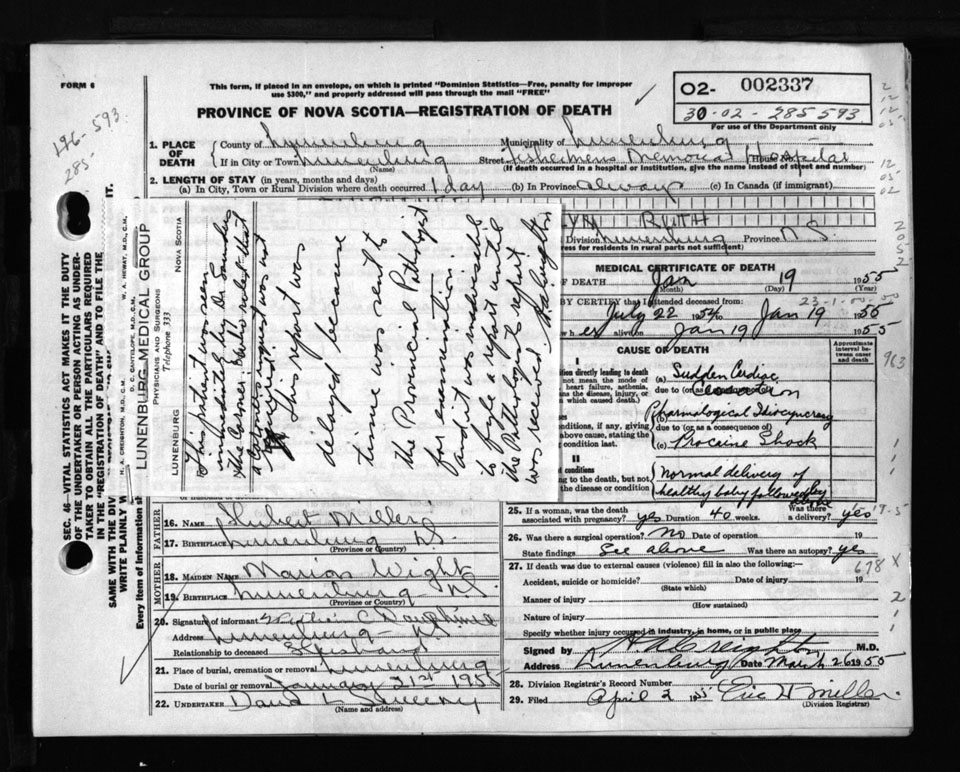 FORM 6
This form, if placed in an envelope, on which is printed "Dominion Statistics—Free, penalty for improper
use $300," and properly addressed will pass through the mail "FREE"
PROVINCE OF NOVA SCOTIA—REGISTRATION OF DEATH
O2- 002337
30-02-285593
For use of the Department only
196-593
285-
1. PLACE OF DEATH
County of Lunenburg Municipality of Lunenburg
If in City or Town Lunenburg Street Fishermens Memorial Hospital House No.
(Name) (If death occurred in a hospital or institution, give the name instead of street and number)
2. LENGTH OF STAY (in years, months and days)
(a) In City, Town or Rural Division where death occurred 1 day (b) In Province always (c) In Canada (if immigrant)
LYN RUTH
Division Lunenburg Province N.S.
ess for residents in rural parts not sufficient)
MEDICAL CERTIFICATE OF DEATH
OF DEATH Jan 19 1955
(Month) (Day) (Year)
BY CERTIFY that I attended deceased from:
July 22 1954 to Jan 19 1955
w h er alive on Jan 19 1955
CAUSE OF DEATH
Approximate interval between onset and death
I
ndition directly leading to death
not mean the mode of
heart failure, asthenia,
ns the disease, injury, or
which caused death.)
(a) Sudden Cardiac
due to (or as
(b) Pharmological Idiocyncracy
nditions, if any, giving
bove cause, stating the
condition last.
due to (or as a consequence of)
(c) Procaine Shock
II
t conditions
g to the death, but not
the disease or condition
normal delivery of
healthy baby followed by
963
LUNENBURG MEDICAL GROUP
PHYSICIANS AND SURGEONS
H. A. CREIGHTON, M.D., C.M. D. C. CANTELOPE, M.D., C.M. W. A. HEWAT, M.D., C.M.
LUNENBURG Telephone 333 NOVA SCOTIA
This patient was seen
immediately by Dr. Saunders
the Coroner who
a Coroners inquest was not
required.
This report was
delayed because
tissue was sent to
the Provincial Pathologist
for examination.
and it was inadvisible
to file a report until
the Pathologists report
was received.
SEC. 46—VITAL STATISTICS ACT MAKES IT THE DUTY
OF THE UNDERTAKER OR PERSON ACTING AS UNDER-
TAKER TO OBTAIN ALL THE PARTICULARS REQUIRED
IN THE "REGISTRATION OF DEATH" AND TO FILE THE
SAME WITH THE DIV IT.
WRITE PLAINLY W
Every item of information sh
FATHER
16. NAME Hubert Miller
17. BIRTHPLACE Lunenburg N.S.
(Province or Country)
MOTHER
18. MAIDEN NAME Marion Wight
19. BIRTHPLACE Lunenburg N.S.
(Province or Country)
20. Signature of informant Stephen C Dauphinee
Address Lunenburg N.S.
Relationship to deceased Husband
21. Place of burial, cremation or removal Lunenburg
Date of burial or removal January 21st 1955
22. UNDERTAKER David L Sweeny
(Name and address)
25. If a woman, was the death associated with pregnancy? yes Duration 40 weeks. Was there a delivery? yes
26. Was there a surgical operation? No Date of operation 19
State findings See above Was there an autopsy? yes
27. If death was due to external causes (violence) fill in also the following:—
Accident, suicide or homicide? Date of injury 19
(State which)
Manner of injury
(How sustained)
Nature of injury
Specify whether injury occurred in industry, in home, or in public place
Signed by H.A. Creighton M.D.
Address Lunenburg Date March 26 1955
28. Division Registrar's Record Number
29. Filed April 2 1955 Eric H Miller
(Division Registrar)
678 X